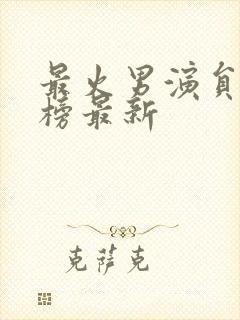 最火男演员
榜最新
克萨克